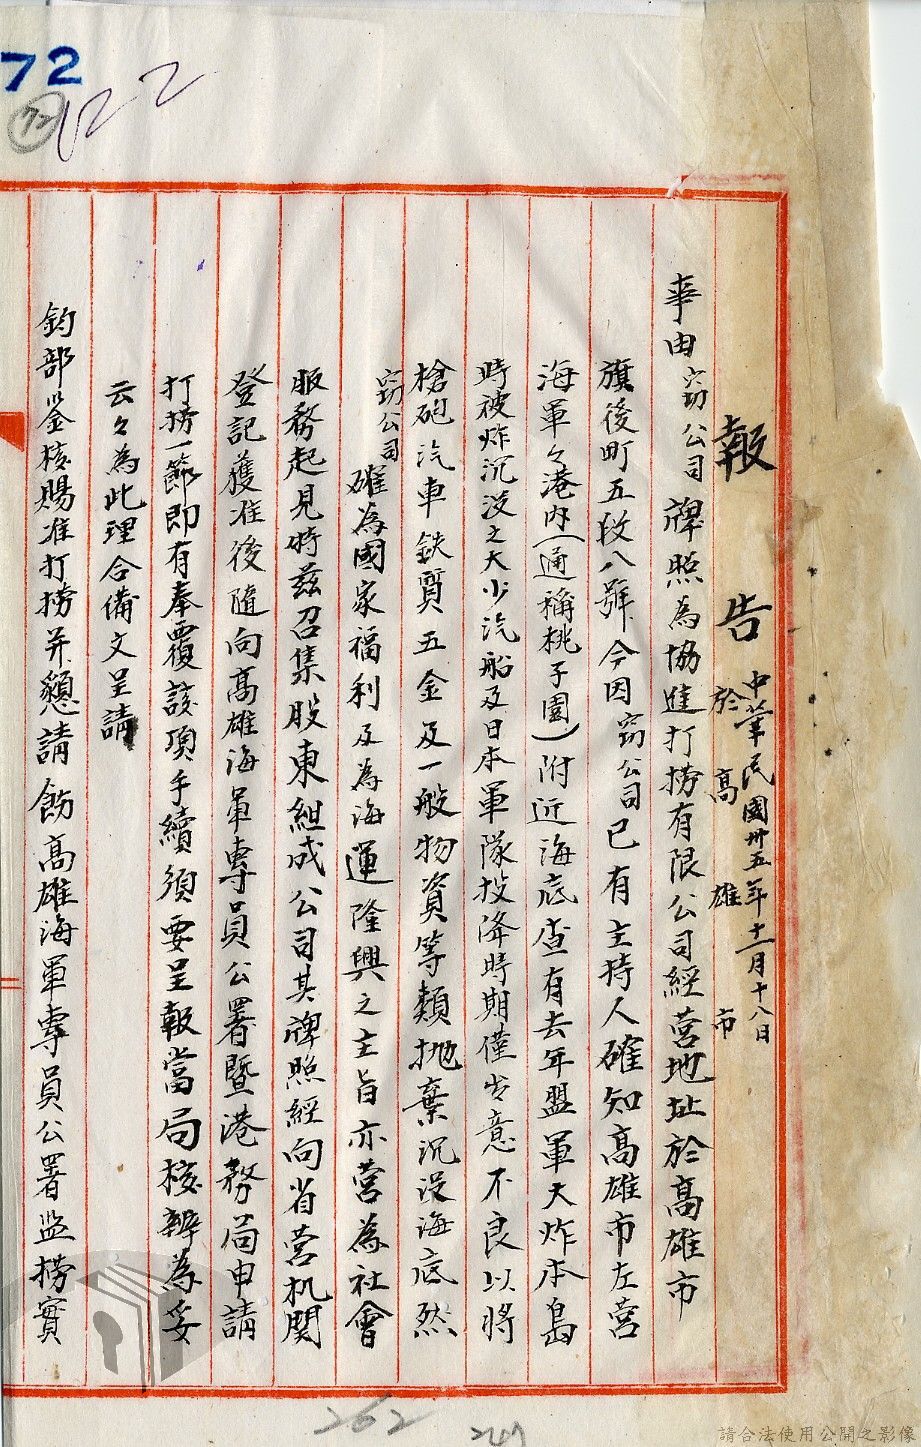 72
72
122
報告 於高雄市
中華民國卅五年十一月十八日
事由 窃公司牌照為協進打撈有限公司經營地址於高雄市
旗後町五段八號今因窃公司已有主持人確知高雄市左營
海軍々港內(通稱桃子園)附近海底查有去年盟軍大炸本島
時被炸沉没之大少汽船及日本軍隊投降時期僅少意不良以將
槍砲汽車鉄質五金及一般物資等類拋棄沉没海底然
窃公司確為國家福利及為海運隆興之主旨亦營為社會
服務起見時茲召集股東組成公司其牌照經向省营机関
登記獲准後隨向高雄海軍專員公署暨港務局申請
打撈一節即有奉覆該項手續須要呈報當局核辦為妥
云々為此理合備文呈請
鈞部鉴核賜准打撈并懇請飭高雄海軍專員公署监撈實
262
請合法使用公開之影像